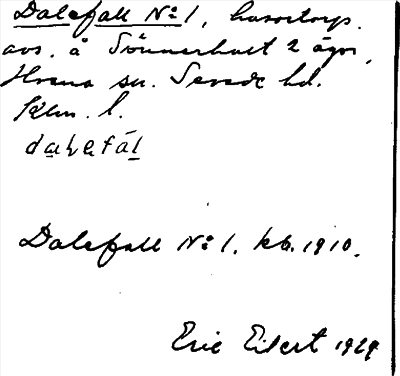 Dalefall No 1, husartorp.
avs. å Sönnerhult 2 ägor,
Hvena sn. Sevede hd.
Klm. l.
dalefal
Dalefall No 1. kb. 1910.
Eric Eilert 1929